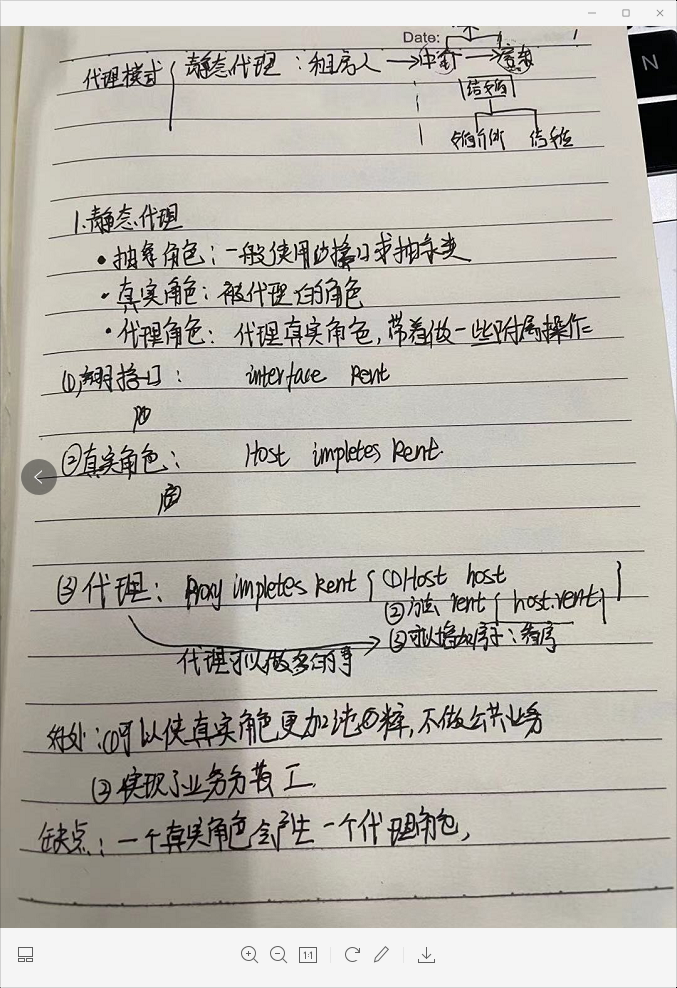 Date:
代理模式 { 静态代理 : 租房人 → 中介 → 房东
1.静态代理
• 抽象角色 : 一般使用的接口或抽象类
• 真实角色 : 被代理的角色
• 代理角色 : 代理真实角色, 带着做一些附属操作
① 声明接口 : interface Rent
② 真实角色 : Host impletes Rent.
③ 代理 : Proxy impletes Rent { ① Host host
② 方法 rent { host.rent. } }
③ 可以增加
代理可以做多的事
好处 : ① 可以使真实角色更加纯粹, 不做公共业务
② 实现了业务分工.
缺点 : 一个真实角色会产生一个代理角色,
N
1:1